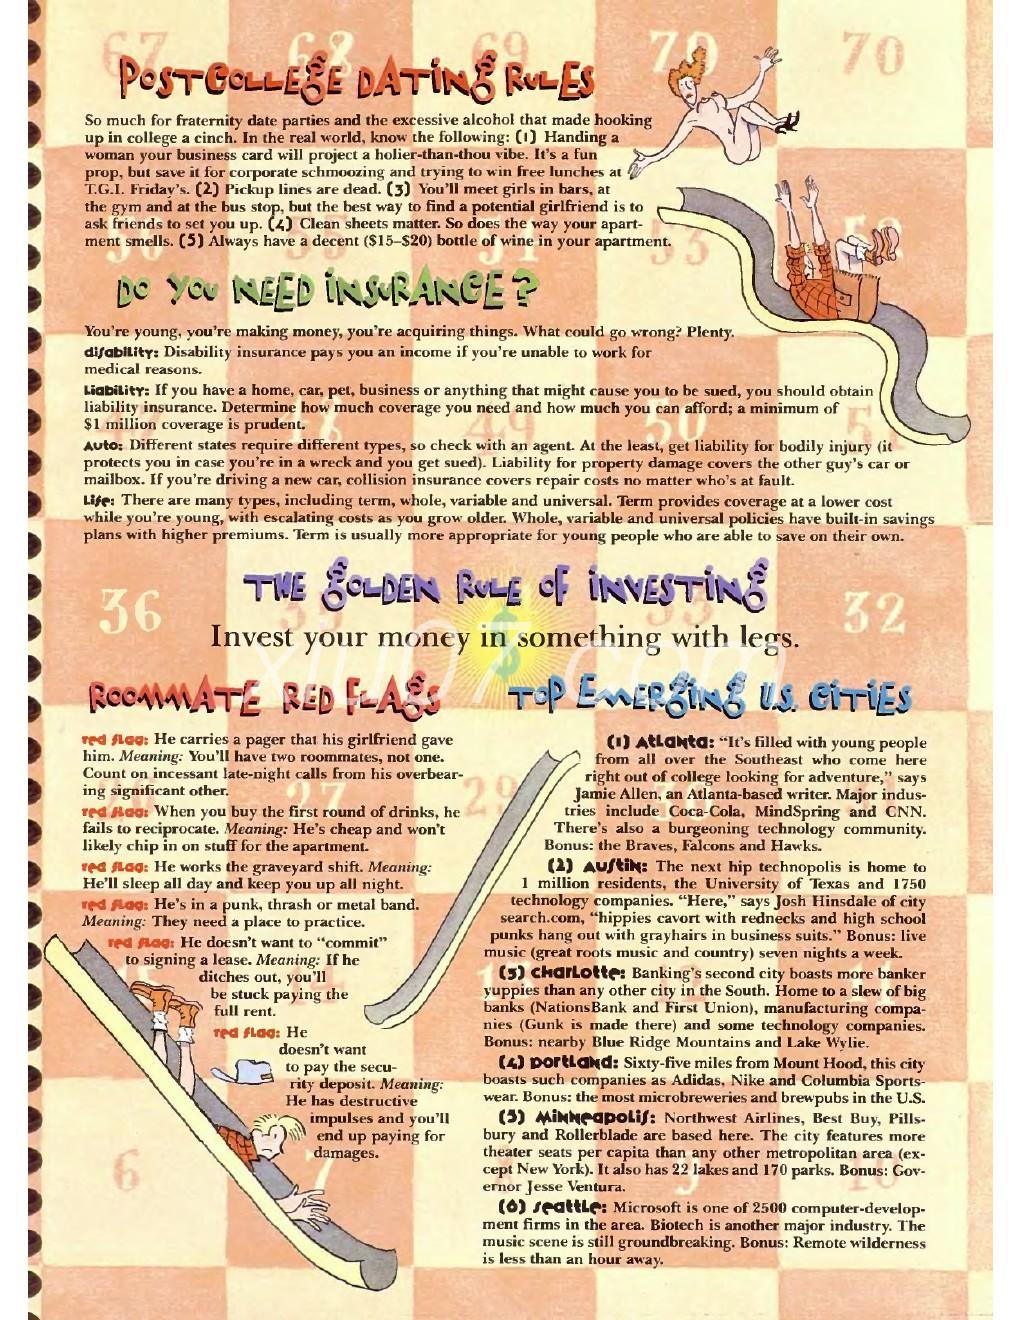 67 68 69 70 70
POSTCOLLEGE DATING RULES
So much for fraternity date parties and the excessive alcohol that made hooking
up in college a cinch. In the real world, know the following: (1) Handing a
woman your business card will project a holier-than-thou vibe. It's a fun
prop, but save it for corporate schmoozing and trying to win free lunches at
T.G.I. Friday's. (2) Pickup lines are dead. (3) You'll meet girls in bars, at
the gym and at the bus stop, but the best way to find a potential girlfriend is to
ask friends to set you up. (4) Clean sheets matter. So does the way your apart-
ment smells. (5) Always have a decent ($15–$20) bottle of wine in your apartment.
DO YOU NEED INSURANCE?
You're young, you're making money, you're acquiring things. What could go wrong? Plenty.
disability: Disability insurance pays you an income if you're unable to work for
medical reasons.
Liability: If you have a home, car, pet, business or anything that might cause you to be sued, you should obtain
liability insurance. Determine how much coverage you need and how much you can afford; a minimum of
$1 million coverage is prudent.
Auto: Different states require different types, so check with an agent. At the least, get liability for bodily injury (it
protects you in case you're in a wreck and you get sued). Liability for property damage covers the other guy's car or
mailbox. If you're driving a new car, collision insurance covers repair costs no matter who's at fault.
Life: There are many types, including term, whole, variable and universal. Term provides coverage at a lower cost
while you're young, with escalating costs as you grow older. Whole, variable and universal policies have built-in savings
plans with higher premiums. Term is usually more appropriate for young people who are able to save on their own.
THE GOLDEN RULE OF INVESTING
36 32
Invest your money in something with legs.
xiu07.com
ROOMMATE RED FLAGS
red flag: He carries a pager that his girlfriend gave
him. Meaning: You'll have two roommates, not one.
Count on incessant late-night calls from his overbear-
ing significant other.
red flag: When you buy the first round of drinks, he
fails to reciprocate. Meaning: He's cheap and won't
likely chip in on stuff for the apartment.
red flag: He works the graveyard shift. Meaning:
He'll sleep all day and keep you up all night.
red flag: He's in a punk, thrash or metal band.
Meaning: They need a place to practice.
red flag: He doesn't want to "commit"
to signing a lease. Meaning: If he
ditches out, you'll
be stuck paying the
full rent.
red flag: He
doesn't want
to pay the secu-
rity deposit. Meaning:
He has destructive
impulses and you'll
end up paying for
damages.
6 7
TOP EMERGING U.S. CITIES
(1) Atlanta: "It's filled with young people
from all over the Southeast who come here
right out of college looking for adventure," says
Jamie Allen, an Atlanta-based writer. Major indus-
tries include Coca-Cola, MindSpring and CNN.
There's also a burgeoning technology community.
Bonus: the Braves, Falcons and Hawks.
(2) Austin: The next hip technopolis is home to
1 million residents, the University of Texas and 1750
technology companies. "Here," says Josh Hinsdale of city
search.com, "hippies cavort with rednecks and high school
punks hang out with grayhairs in business suits." Bonus: live
music (great roots music and country) seven nights a week.
(3) Charlotte: Banking's second city boasts more banker
yuppies than any other city in the South. Home to a slew of big
banks (NationsBank and First Union), manufacturing compa-
nies (Gunk is made there) and some technology companies.
Bonus: nearby Blue Ridge Mountains and Lake Wylie.
(4) Portland: Sixty-five miles from Mount Hood, this city
boasts such companies as Adidas, Nike and Columbia Sports-
wear. Bonus: the most microbreweries and brewpubs in the U.S.
(5) Minneapolis: Northwest Airlines, Best Buy, Pills-
bury and Rollerblade are based here. The city features more
theater seats per capita than any other metropolitan area (ex-
cept New York). It also has 22 lakes and 170 parks. Bonus: Gov-
ernor Jesse Ventura.
(6) Seattle: Microsoft is one of 2500 computer-develop-
ment firms in the area. Biotech is another major industry. The
music scene is still groundbreaking. Bonus: Remote wilderness
is less than an hour away.